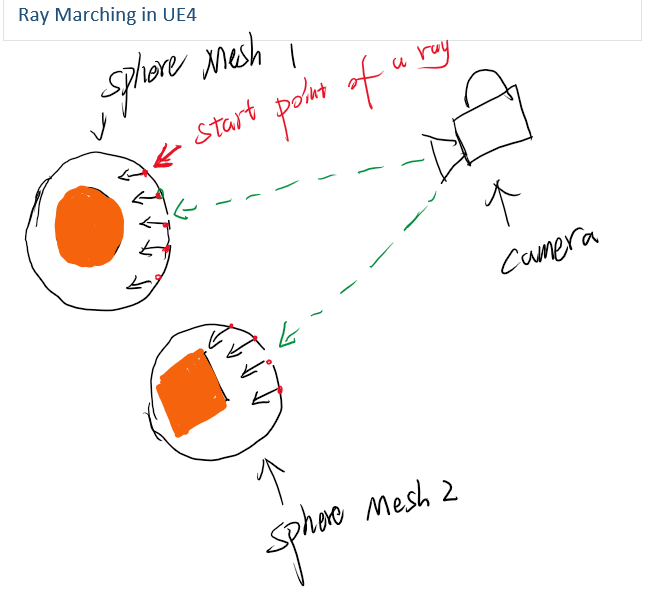 Ray Marching in UE4
sphere Mesh 1
start point of a ray
camera
sphere Mesh 2